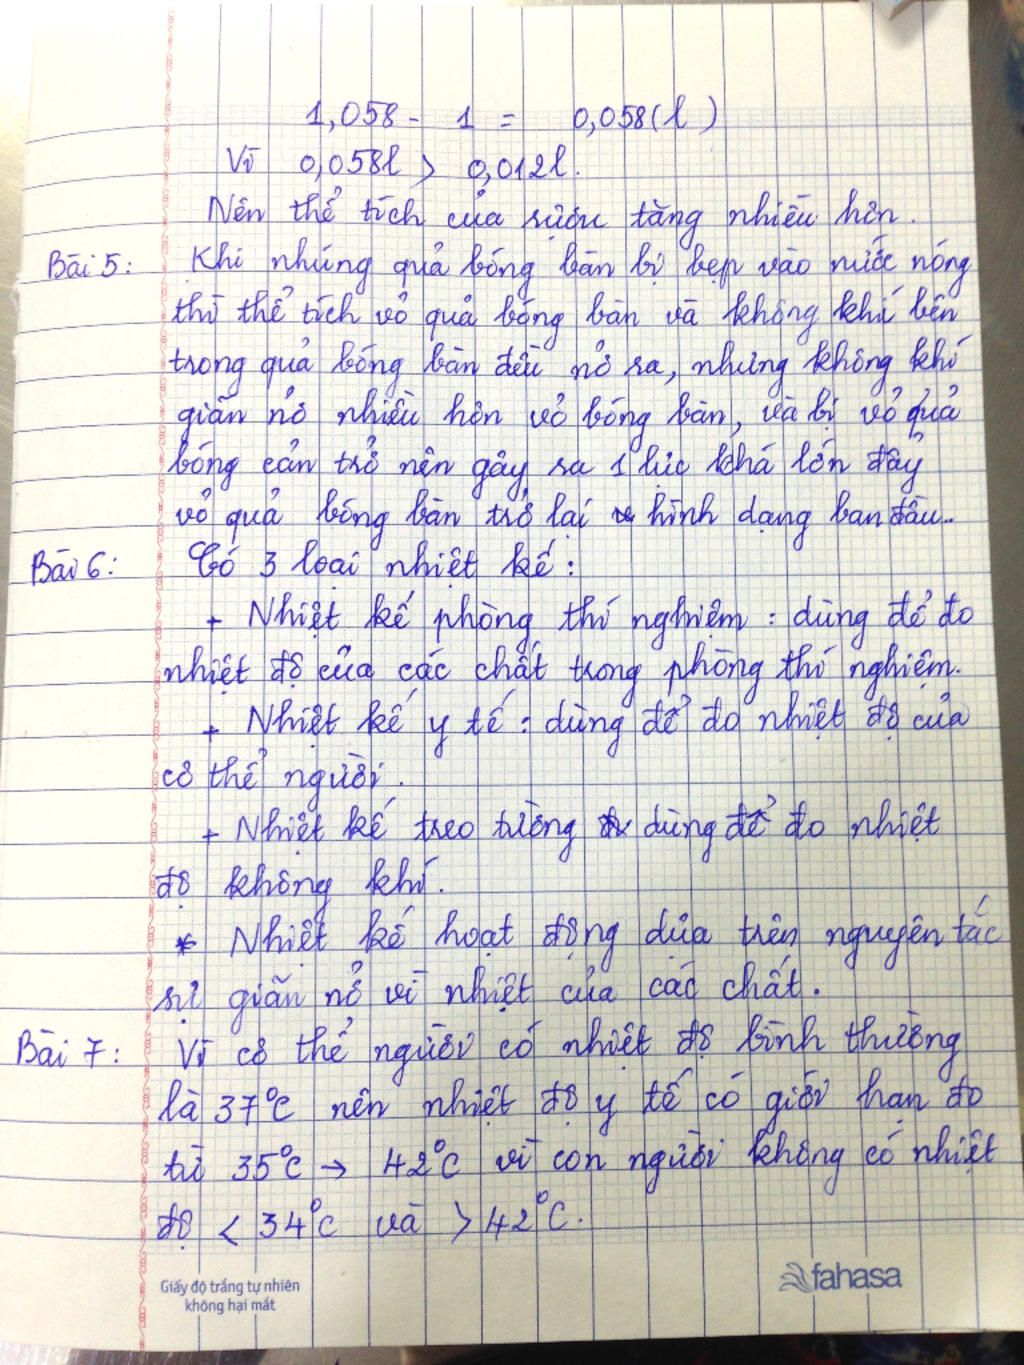 1,058 - 1 = 0,058(l)
Vì 0,058l > 0,012l.
Nên thể tích của rượu tăng nhiều hơn.
Bài 5: Khi nhúng quả bóng bàn bị bẹp vào nước nóng
thì thể tích vỏ quả bóng bàn và không khí bên
trong quả bóng bàn đều nở ra, nhưng không khí
giãn nở nhiều hơn vỏ bóng bàn, và bị vỏ quả
bóng cản trở nên gây ra 1 lực khá lớn đẩy
vỏ quả bóng bàn trở lại hình dạng ban đầu..
Bài 6: Có 3 loại nhiệt kế:
+ Nhiệt kế phòng thí nghiệm: dùng để đo
nhiệt độ của các chất trong phòng thí nghiệm.
+ Nhiệt kế y tế: dùng để đo nhiệt độ của
cơ thể người.
+ Nhiệt kế treo tường dùng để đo nhiệt
độ không khí.
* Nhiệt kế hoạt động dựa trên nguyên tắc
sự giãn nở vì nhiệt của các chất.
Bài 7: Vì cơ thể người có nhiệt độ bình thường
là 37°C nên nhiệt độ y tế có giới hạn đo
từ 35°C → 42°C vì con người không có nhiệt
độ < 34°C và > 42°C.
Giấy độ trắng tự nhiên
không hại mắt
fahasa